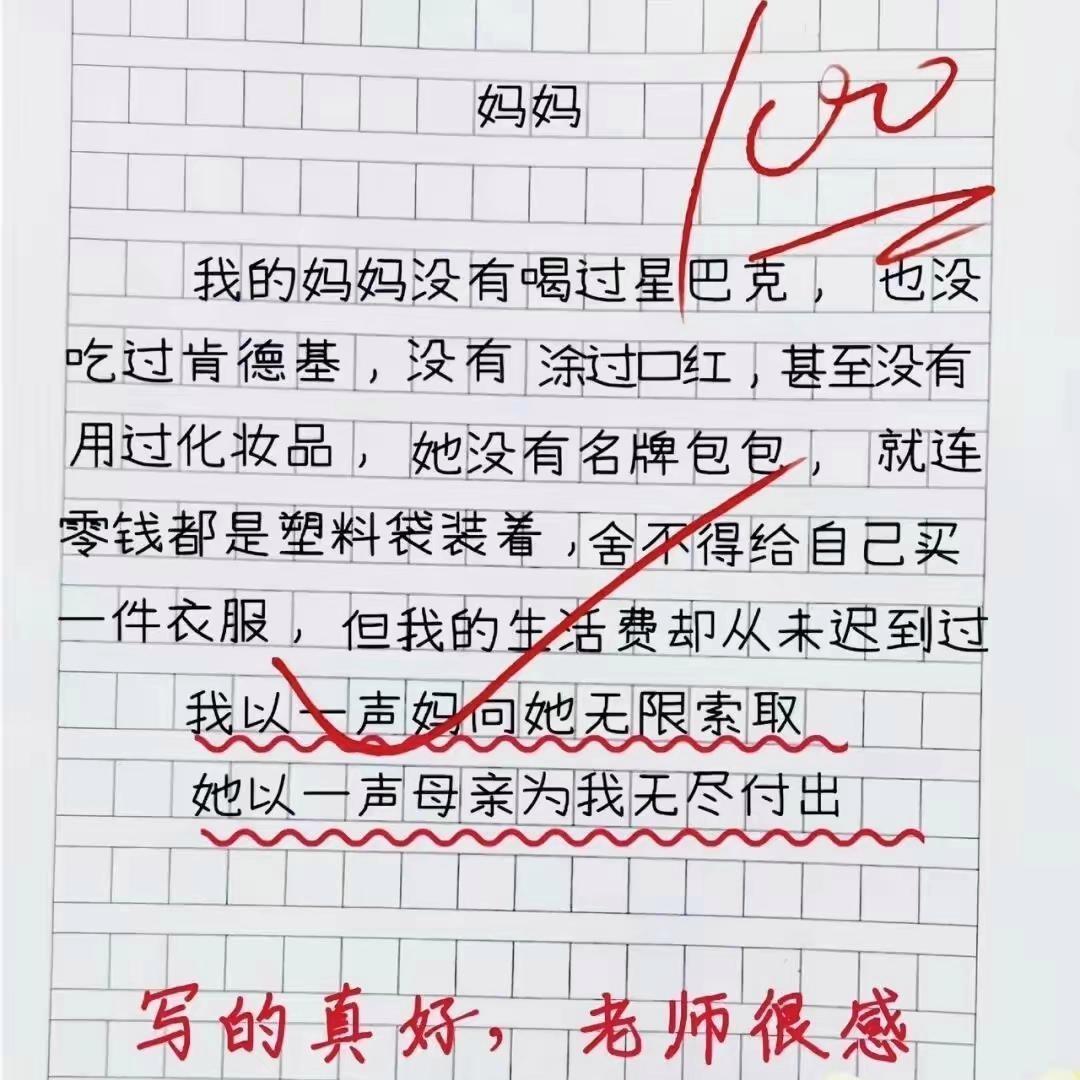 100
妈妈
我的妈妈没有喝过星巴克，也没
吃过肯德基，没有涂过口红，甚至没有
用过化妆品，她没有名牌包包，就连
零钱都是塑料袋装着，舍不得给自己买
一件衣服，但我的生活费却从未迟到过
我以一声妈向她无限索取
她以一声母亲为我无尽付出
写的真好，老师很感